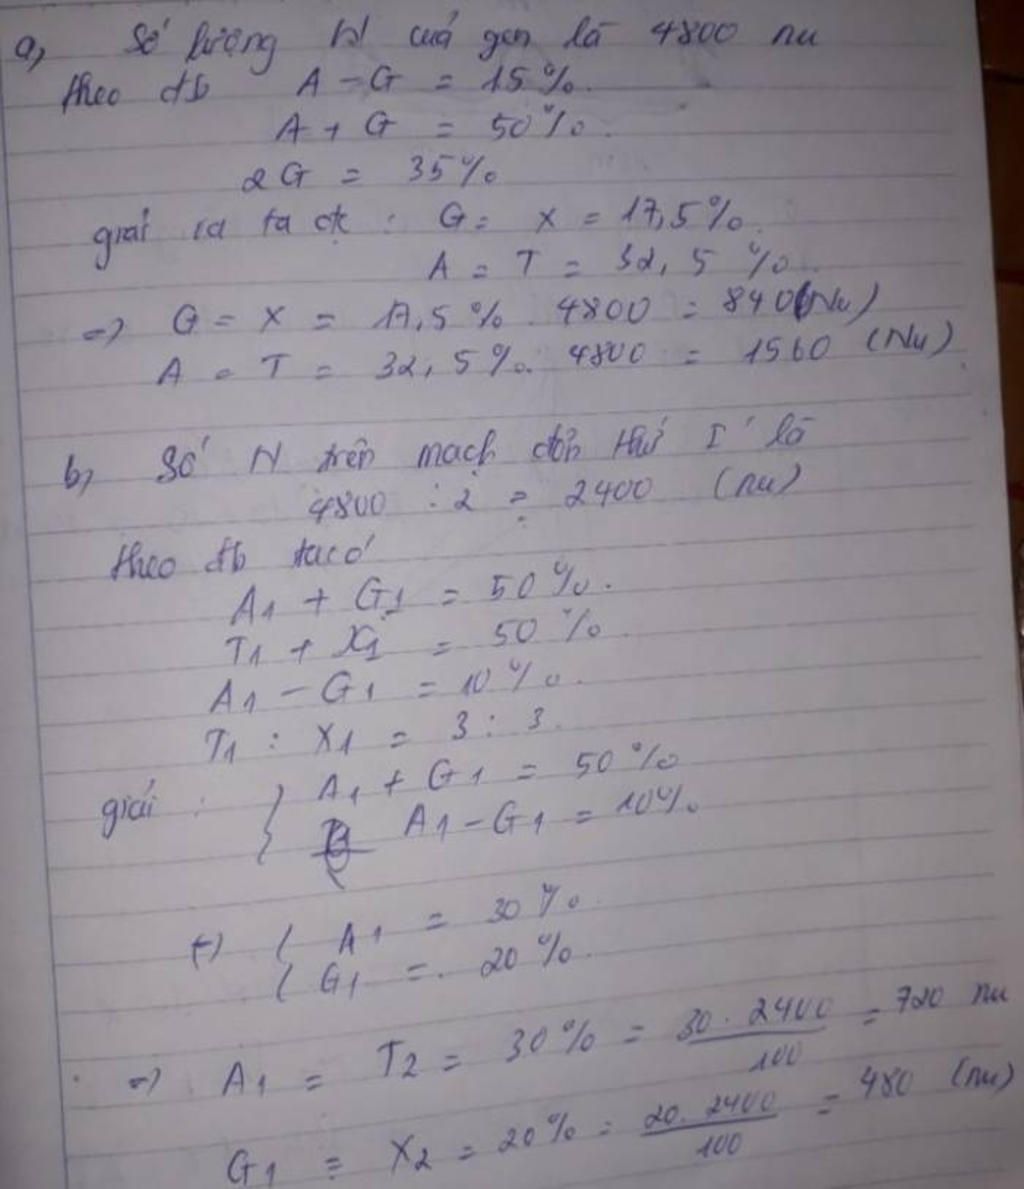 a) Số lượng N của gen là 4800 nu
theo đb A - G = 15%.
A + G = 50%.
2G = 35%
giải ra ta đc : G = X = 17,5%.
A = T = 32,5%.
=> G = X = 17,5% . 4800 = 840 (Nu)
A = T = 32,5% . 4800 = 1560 (Nu)
b) Số N trên mạch đơn thứ I là
4800 : 2 = 2400 (nu)
theo đb ta có
A1 + G1 = 50%.
T1 + X1 = 50%
A1 - G1 = 10%.
T1 : X1 = 3 : 3.
giải : { A1 + G1 = 50%
A1 - G1 = 10%
(-) { A1 = 30%
{ G1 = 20%.
=> A1 = T2 = 30% = 30 . 2400 / 100 = 720 nu
G1 = X2 = 20% = 20 . 2400 / 100 = 480 (nu)